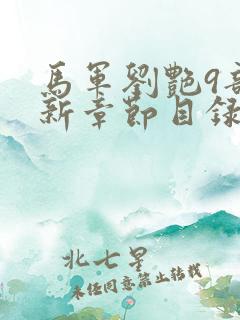 馬軍劉艷9部
新章節目錄
北七星
未经同意禁止转载